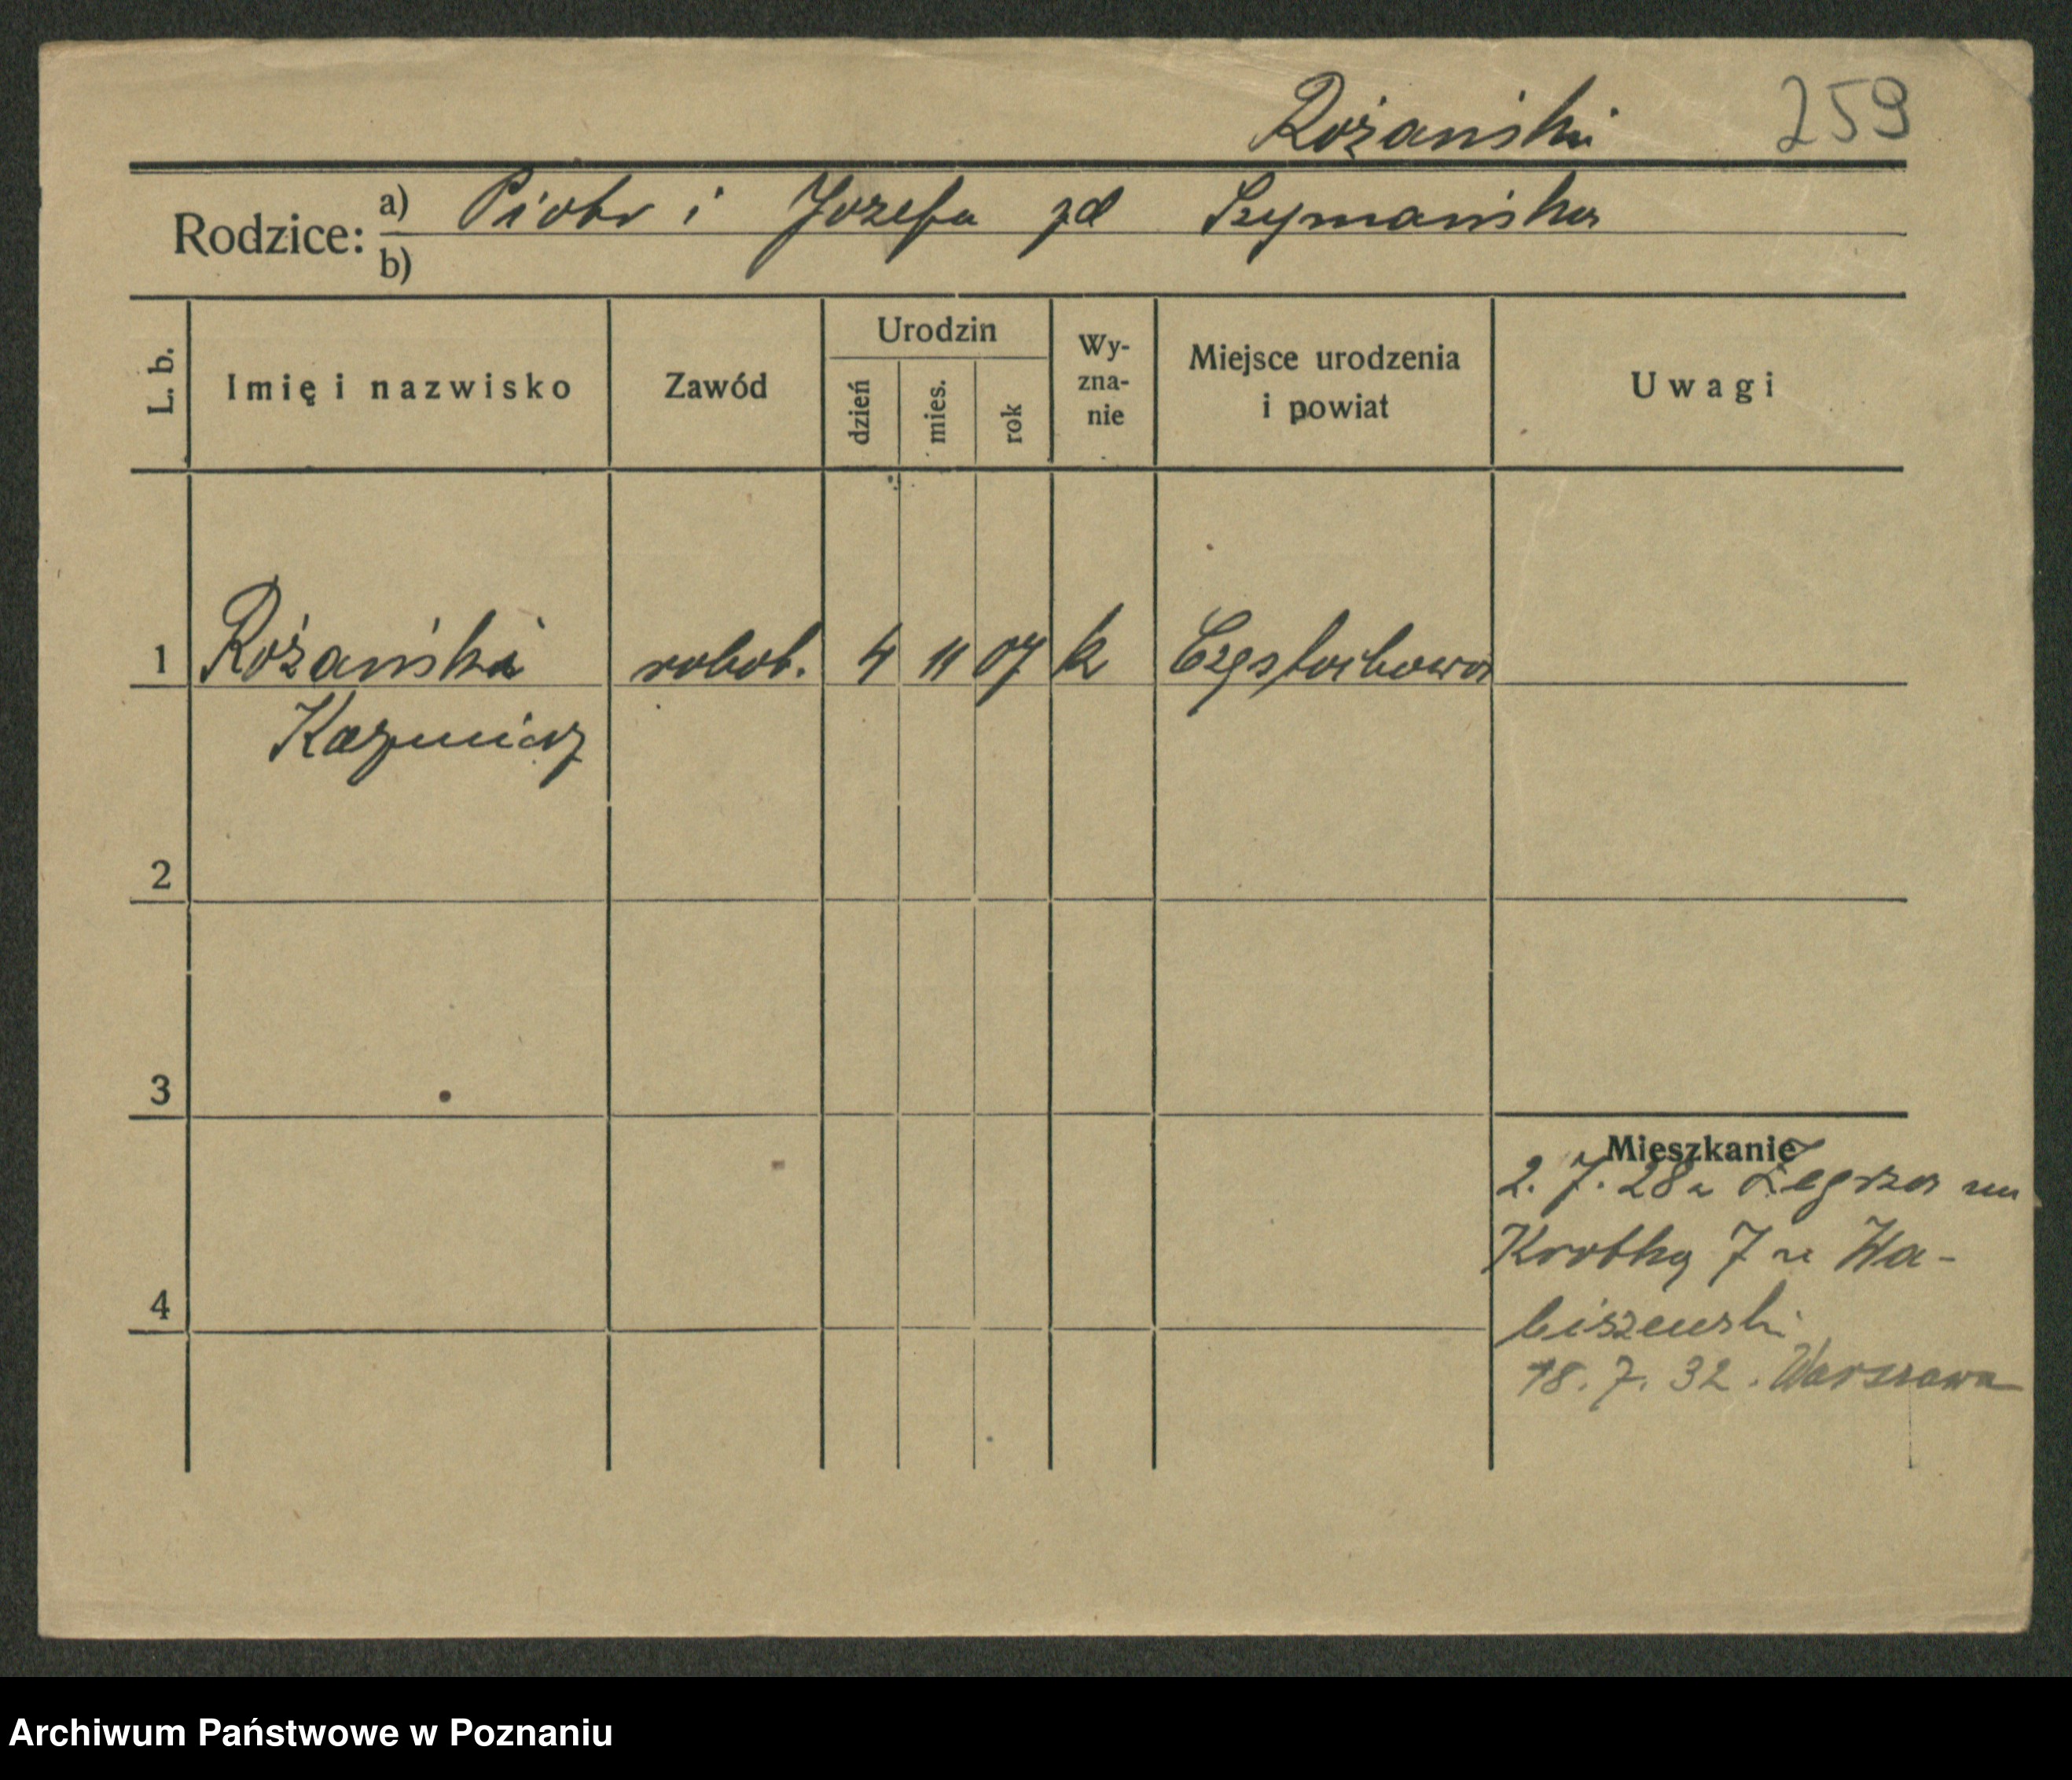 Różański 259
Rodzice: a) Piotr i Jozefa zd Szymańska
b)
L. b. Imię i nazwisko Zawód Urodzin dzień mies. rok Wy-zna-nie Miejsce urodzenia i powiat Uwagi
1 Różański robot. 4 11 07 k Częstochowa
Kazmierz
2
3
Mieszkanie
2. 7. 28 z Zegrza
Krotka 7 u Wa-
4
biszewski
18. 7. 32. Warszawa
Archiwum Państwowe w Poznaniu